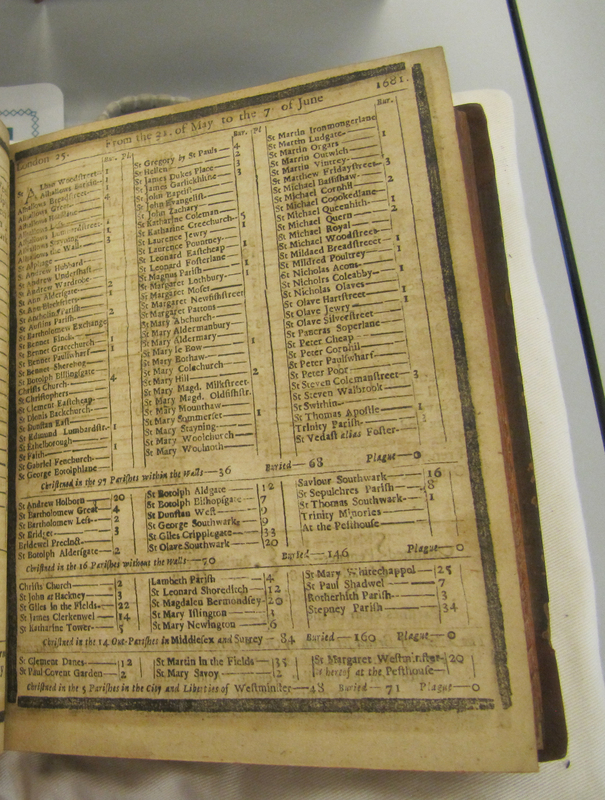 London 25. From the 21. of May to the 7. of June 1681.
Bur. Pl.
St Alban Woodstreet 1
Alhallows Barkin 1
Alhallows Breadstreet
Alhallows Great 4
Alhallows
Alhallows
Alhallows
Alhallows Stayning 3
Alhallows the Wall
St Alphage
St Andrew Hubbard
St Andrew Undershaft
St Andrew Wardrobe 2
St Ann Aldersgate 1
St Ann Blackfriers
St Antholins Parish
St Austins Parish 2
St Bartholomew Exchange
St Bennet Finck 1
St Bennet Gracechurch 1
St Bennet Paulswharf
St Bennet Sherehog
St Botolph Billingsgate
Christs Church 4
St Christophers
St Clement Eastcheap
St Dionis Backchurch
St Dunstan East
St Edmund Lumbardstr. 1
St Ethelborough
St Faith 1
St Gabriel Fenchurch
St George Botolphlane
Bur. Pl
St Gregory by St Pauls 4
St Hellen 2
St James Dukes Place 3
St James Garlickhithe 3
St John Baptist
St John Evangelist
St John Zachary
St Katharine Coleman 5
St Katharine Creechurch
St Laurence Jewry 1
St Laurence Pountney
St Leonard Eastcheap 1
St Leonard Fosterlane
St Magnus Parish 1
St Margaret Lothbury
St Margaret Moses 1
St Margaret Newfishstreet
St Margaret Pattons
St Mary Abchurch
St Mary Aldermanbury
St Mary Aldermary
St Mary le Bow 1
St Mary Bothaw
St Mary Colechurch
St Mary Hill 2
St Mary Magd. Milkstreet
St Mary Magd. Oldfishstr.
St Mary Mounthaw
St Mary Sommerset 1
St Mary Stayning
St Mary Woolchurch
St Mary Woolnoth
Bur.
St Martin Ironmongerlane
St Martin Ludgate
St Martin Orgars 1
St Martin Outwich
St Martin Vintrey
St Matthew Fridaystreet 3
St Michael Bassishaw
St Michael Cornhil 2
St Michael Crookedlane
St Michael Queenhith 1
St Michael Quern
St Michael Royal 2
St Michael Woodstreet
St Mildred Breadstreet 1
St Mildred Poultrey
St Nicholas Acons
St Nicholas Coleabby 1
St Nicholas Olaves
St Olave Hartstreet 1
St Olave Jewry
St Olave Silverstreet 1
St Pancras Soperlane
St Peter Cheap
St Peter Cornhil
St Peter Paulswharf
St Peter Poor
St Steven Colemanstreet 3
St Steven Walbrook
St Swithin
St Thomas Apostle 1
Trinity Parish
St Vedast alias Foster
Christned in the 97 Parishes within the Walls—36 Buried—68 Plague—0
St Andrew Holborn 20
St Bartholomew Great 4
St Bartholomew Less 2
St Bridget 3
Bridewel Precinct
St Botolph Aldersgate 2
St Botolph Aldgate 12
St Botolph Bishopsgate 7
St Dunstan West 9
St George Southwark 9
St Giles Cripplegate 33
St Olave Southwark 20
Saviour Southwark 16
St Sepulchres Parish 8
St Thomas Southwark 1
Trinity Minories
At the Pesthouse
Christned in the 16 Parishes without the Walls—70 Buried—146 Plague—0
Christs Church 2
St John at Hackney 3
St Giles in the Fields 22
St James Clerkenwel 14
St Katharine Tower 5
Lambeth Parish 4
St Leonard Shoreditch 12
St Magdalen Bermondsey 20
St Mary Islington 1
St Mary Newington 6
St Mary Whitechappol 25
St Paul Shadwel 7
Rotherhith Parish 3
Stepney Parish 34
Christned in the 14 Out-Parishes in Middlesex and Surrey—84 Buried—160 Plague—0
St Clement Danes 12
St Paul Covent Garden 2
St Martin in the Fields 35
St Mary Savoy 2
St Margaret Westminster 20
whereof at the Pesthouse
Christned in the 5 Parishes in the City and Liberties of Westminster—48 Buried—71 Plague—0